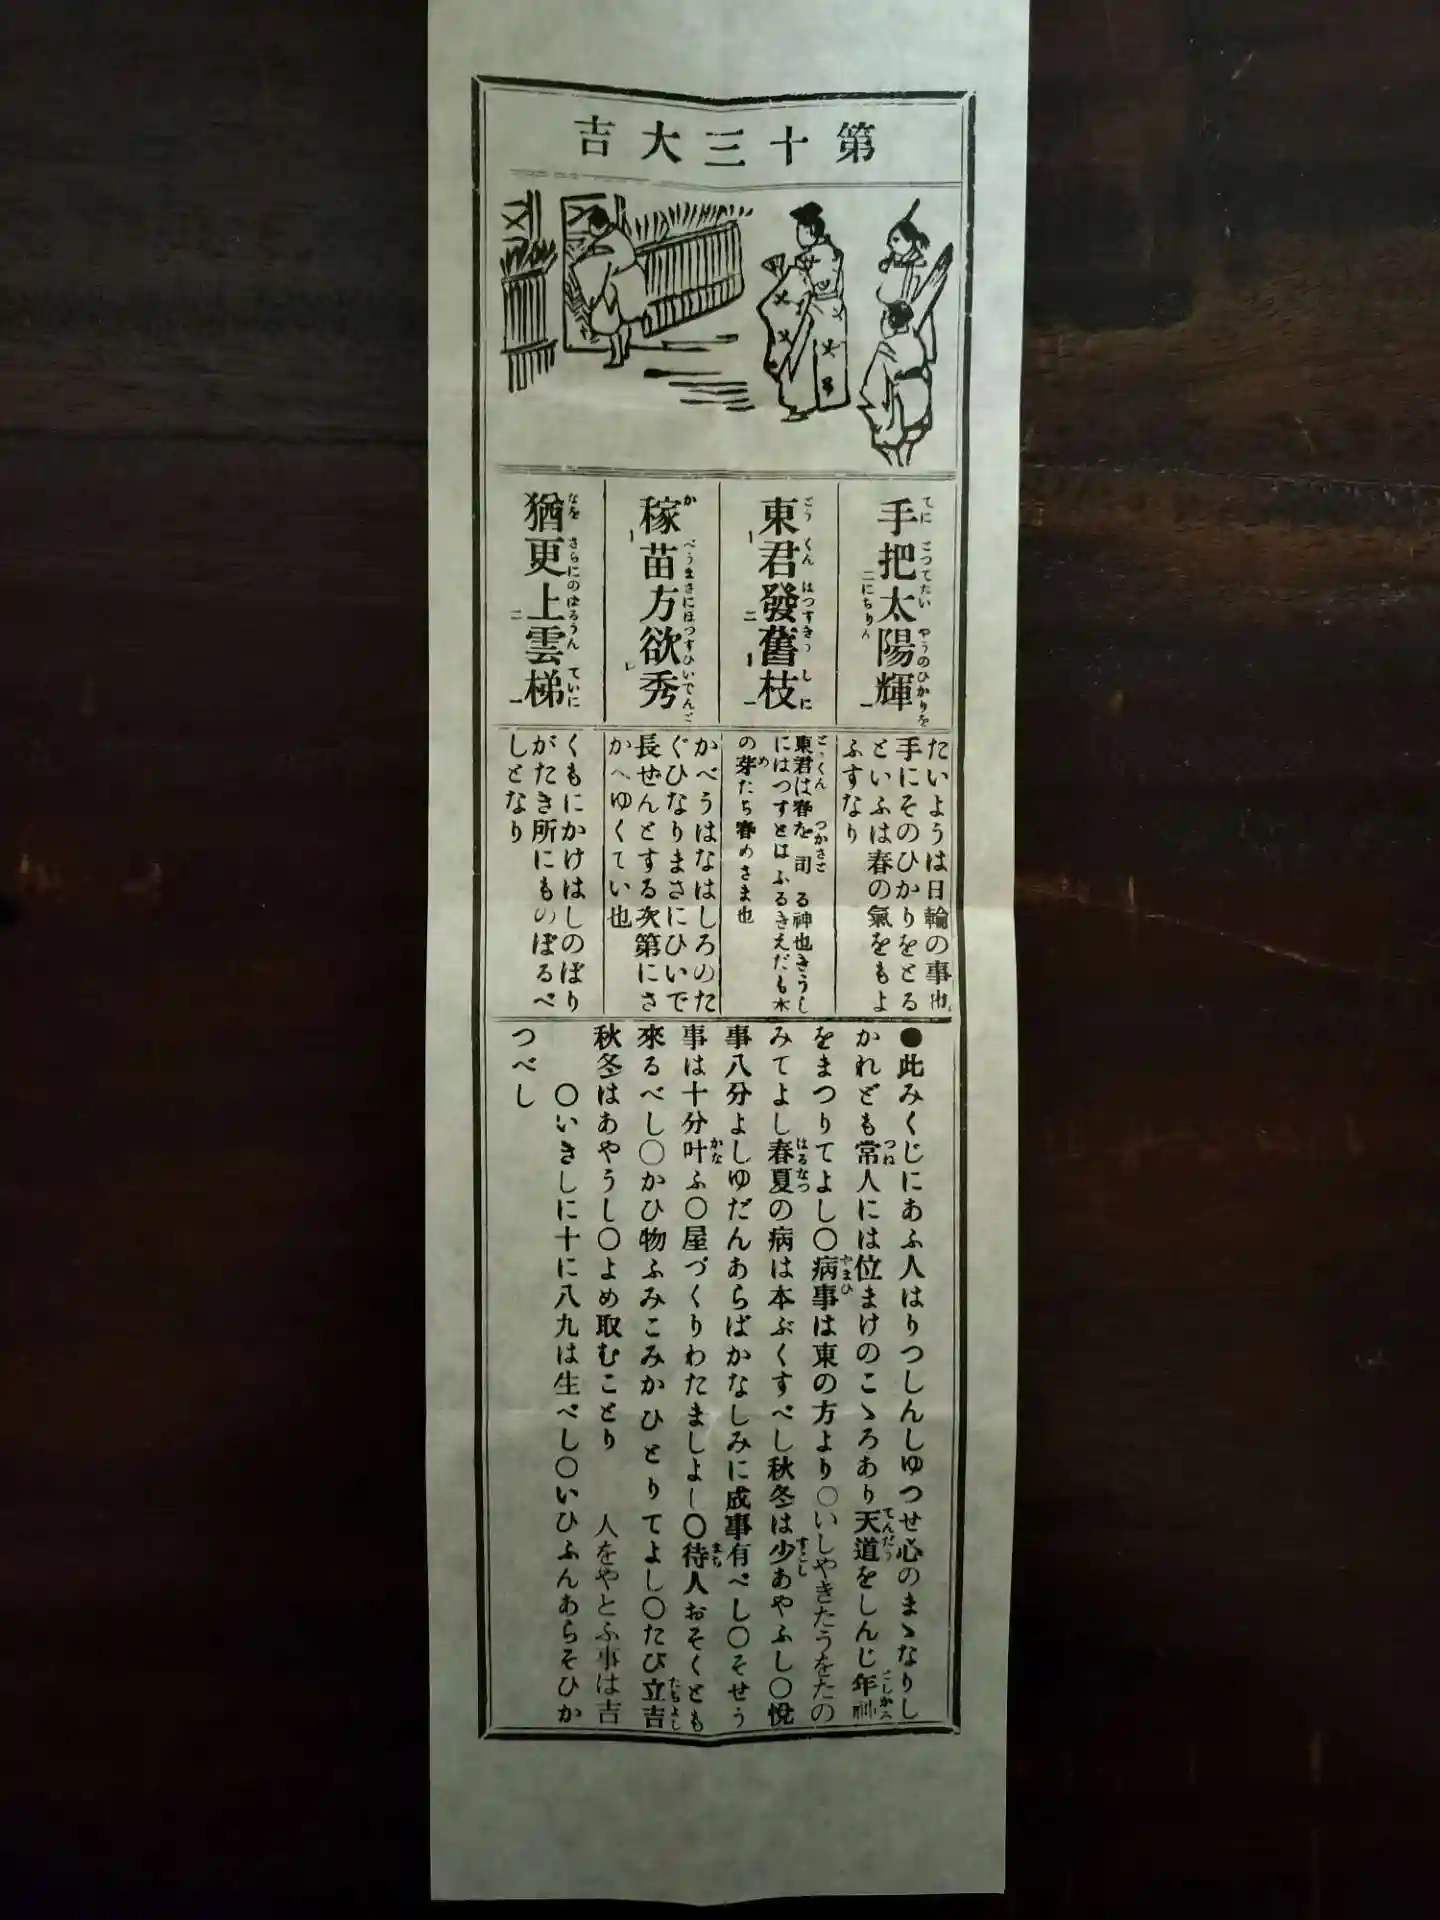 第十三大吉
手把太陽輝
東君發舊枝
稼苗方欲秀
猶更上雲梯
たいようは日輪の事也
手にそのひかりをとる
といふは春の氣をもよ
ふすなり
東君は春を司る神也きうし
にはつすとはふるきえだも木
の芽たち春めさま也
かべうはなはしろのた
ぐひなりまさにひいで
長せんとする次第にさ
かへゆくてい也
くもにかけはしのぼり
がたき所にものぼるべ
しとなり
●此みくじにあふ人はりつしんしゆつせ心のまゝなりし
かれども常人には位まけのこゝろあり天道をしんじ年神
をまつりてよし〇病事は東の方より〇いしやきたうをたの
みてよし春夏の病は本ぶくすべし秋冬は少あやふし〇悅
事八分よしゆだんあらばかなしみに成事有べし〇そせう
事は十分叶ふ〇屋づくりわたましよし〇待人おそくとも
來るべし〇かひ物ふみこみかひとりてよし〇たび立吉
秋冬はあやうし〇よめ取むことり 人をやとふ事は吉
〇いきしに十に八九は生べし〇いひふんあらそひか
つべし